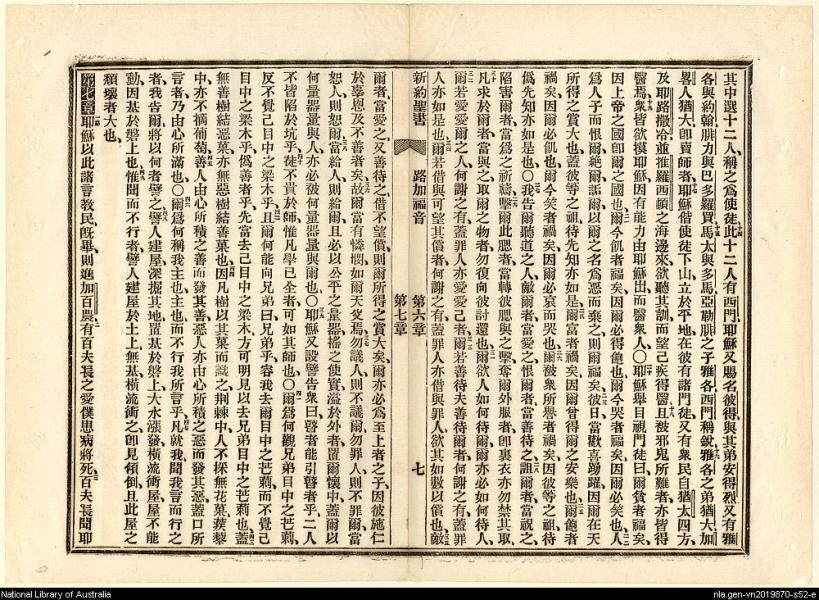 其中選十二人稱之爲使徒此十二人有西門耶穌又賜名彼得與其弟安得烈又有雅
各與約翰腓力與巴多羅買馬太與多馬亞勒腓之子雅各西門稱銳雅各之弟猶大加
畧人猶大卽賣師者耶穌偕使徒下山立於平地在彼有諸門徒又有衆民自猶太四方
及耶路撒冷並推羅西頓之海邊來欲聽其訓而望己疾得醫且被邪鬼所難者亦皆得
醫焉衆皆欲摸耶穌因有能力由耶穌出而醫衆人〇耶穌舉目視門徒曰爾貧者福矣
因上帝之國卽爾之國也爾今飢者福矣因爾必得飽也爾今哭者福矣因爾必笑也人
爲人子而恨爾絶爾詬爾以爾之名爲惡而棄之則爾福矣彼日當歡喜踴躍因爾在天
所得之賞大也蓋彼等之祖待先知亦如是爾富者禍矣因爾曾得爾之安樂也爾飽者
禍矣因爾必飢也爾今笑者禍矣因爾必哀而哭也爾被衆所譽者禍矣因彼等之祖待
僞先知亦如是也〇我告爾聽道之人敵爾者當愛之恨爾者當善待之詛爾者當祝之
陷害爾者當爲之祈禱擊爾此腮者當轉彼腮與之擊奪爾外服者卽裏衣亦勿禁其取
凡求於爾者當與之取爾之物者勿復向彼討還也爾欲人如何待爾爾亦必如何待人
爾若愛愛爾之人何謝之有蓋罪人亦愛愛己者爾若善待夫善待爾者何謝之有蓋罪
人亦如是也爾若借與可望其償者何謝之有蓋罪人亦借與罪人欲其如數以償也敵
新約聖書 路加福音 第六章 第七章 七
爾者當愛之又善待之借不望償則爾所得之賞大矣爾亦必爲至上者之子因彼施仁
於辜恩及不善者矣故爾當有憐憫如爾天父焉勿議人則不議爾勿罪人則不罪爾當
恕人則恕爾當給人則給爾且必以公平之量器搖之使實溢於外者置爾懷中蓋爾以
何量器量與人亦必彼何量器量與爾也〇耶穌又設譬告衆曰瞽者能引瞽者乎二人
不皆陷於坑乎徒不貴於師惟凡學已全者可如其師也〇爾爲何觀兄弟目中之芒薊
反不覺己目中之梁木乎且爾何能向兄弟曰兄弟乎容我去爾目中之芒薊而不覺己
目中之梁木乎僞善者乎先當去己目中之梁木方可明見以去兄弟目中之芒薊也蓋
無善樹結惡菓亦無惡樹結善菓也因凡樹以其菓而識之荆棘中人不採無花菓蒺藜
中亦不摘葡萄善人由心所積之善而發其善惡人亦由心所積之惡而發其惡蓋口所
言者乃由心所滿也〇爾爲何稱我主也主也而不行我所言乎凡就我聞我言而行之
者我告爾將以何者譬之譬人建屋深掘其地置基於磐上大水漲發橫流衝屋屋不能
動因基於磐上也惟聞而不行者譬人建屋於土上無基橫流衝之卽見傾倒且此屋之
頹壞者大也
第七章耶穌以此諸言教民旣畢則進加百農有百夫長之愛僕患病將死百夫長聞耶
National Library of Australia
nla.gen-vn2019870-s52-e